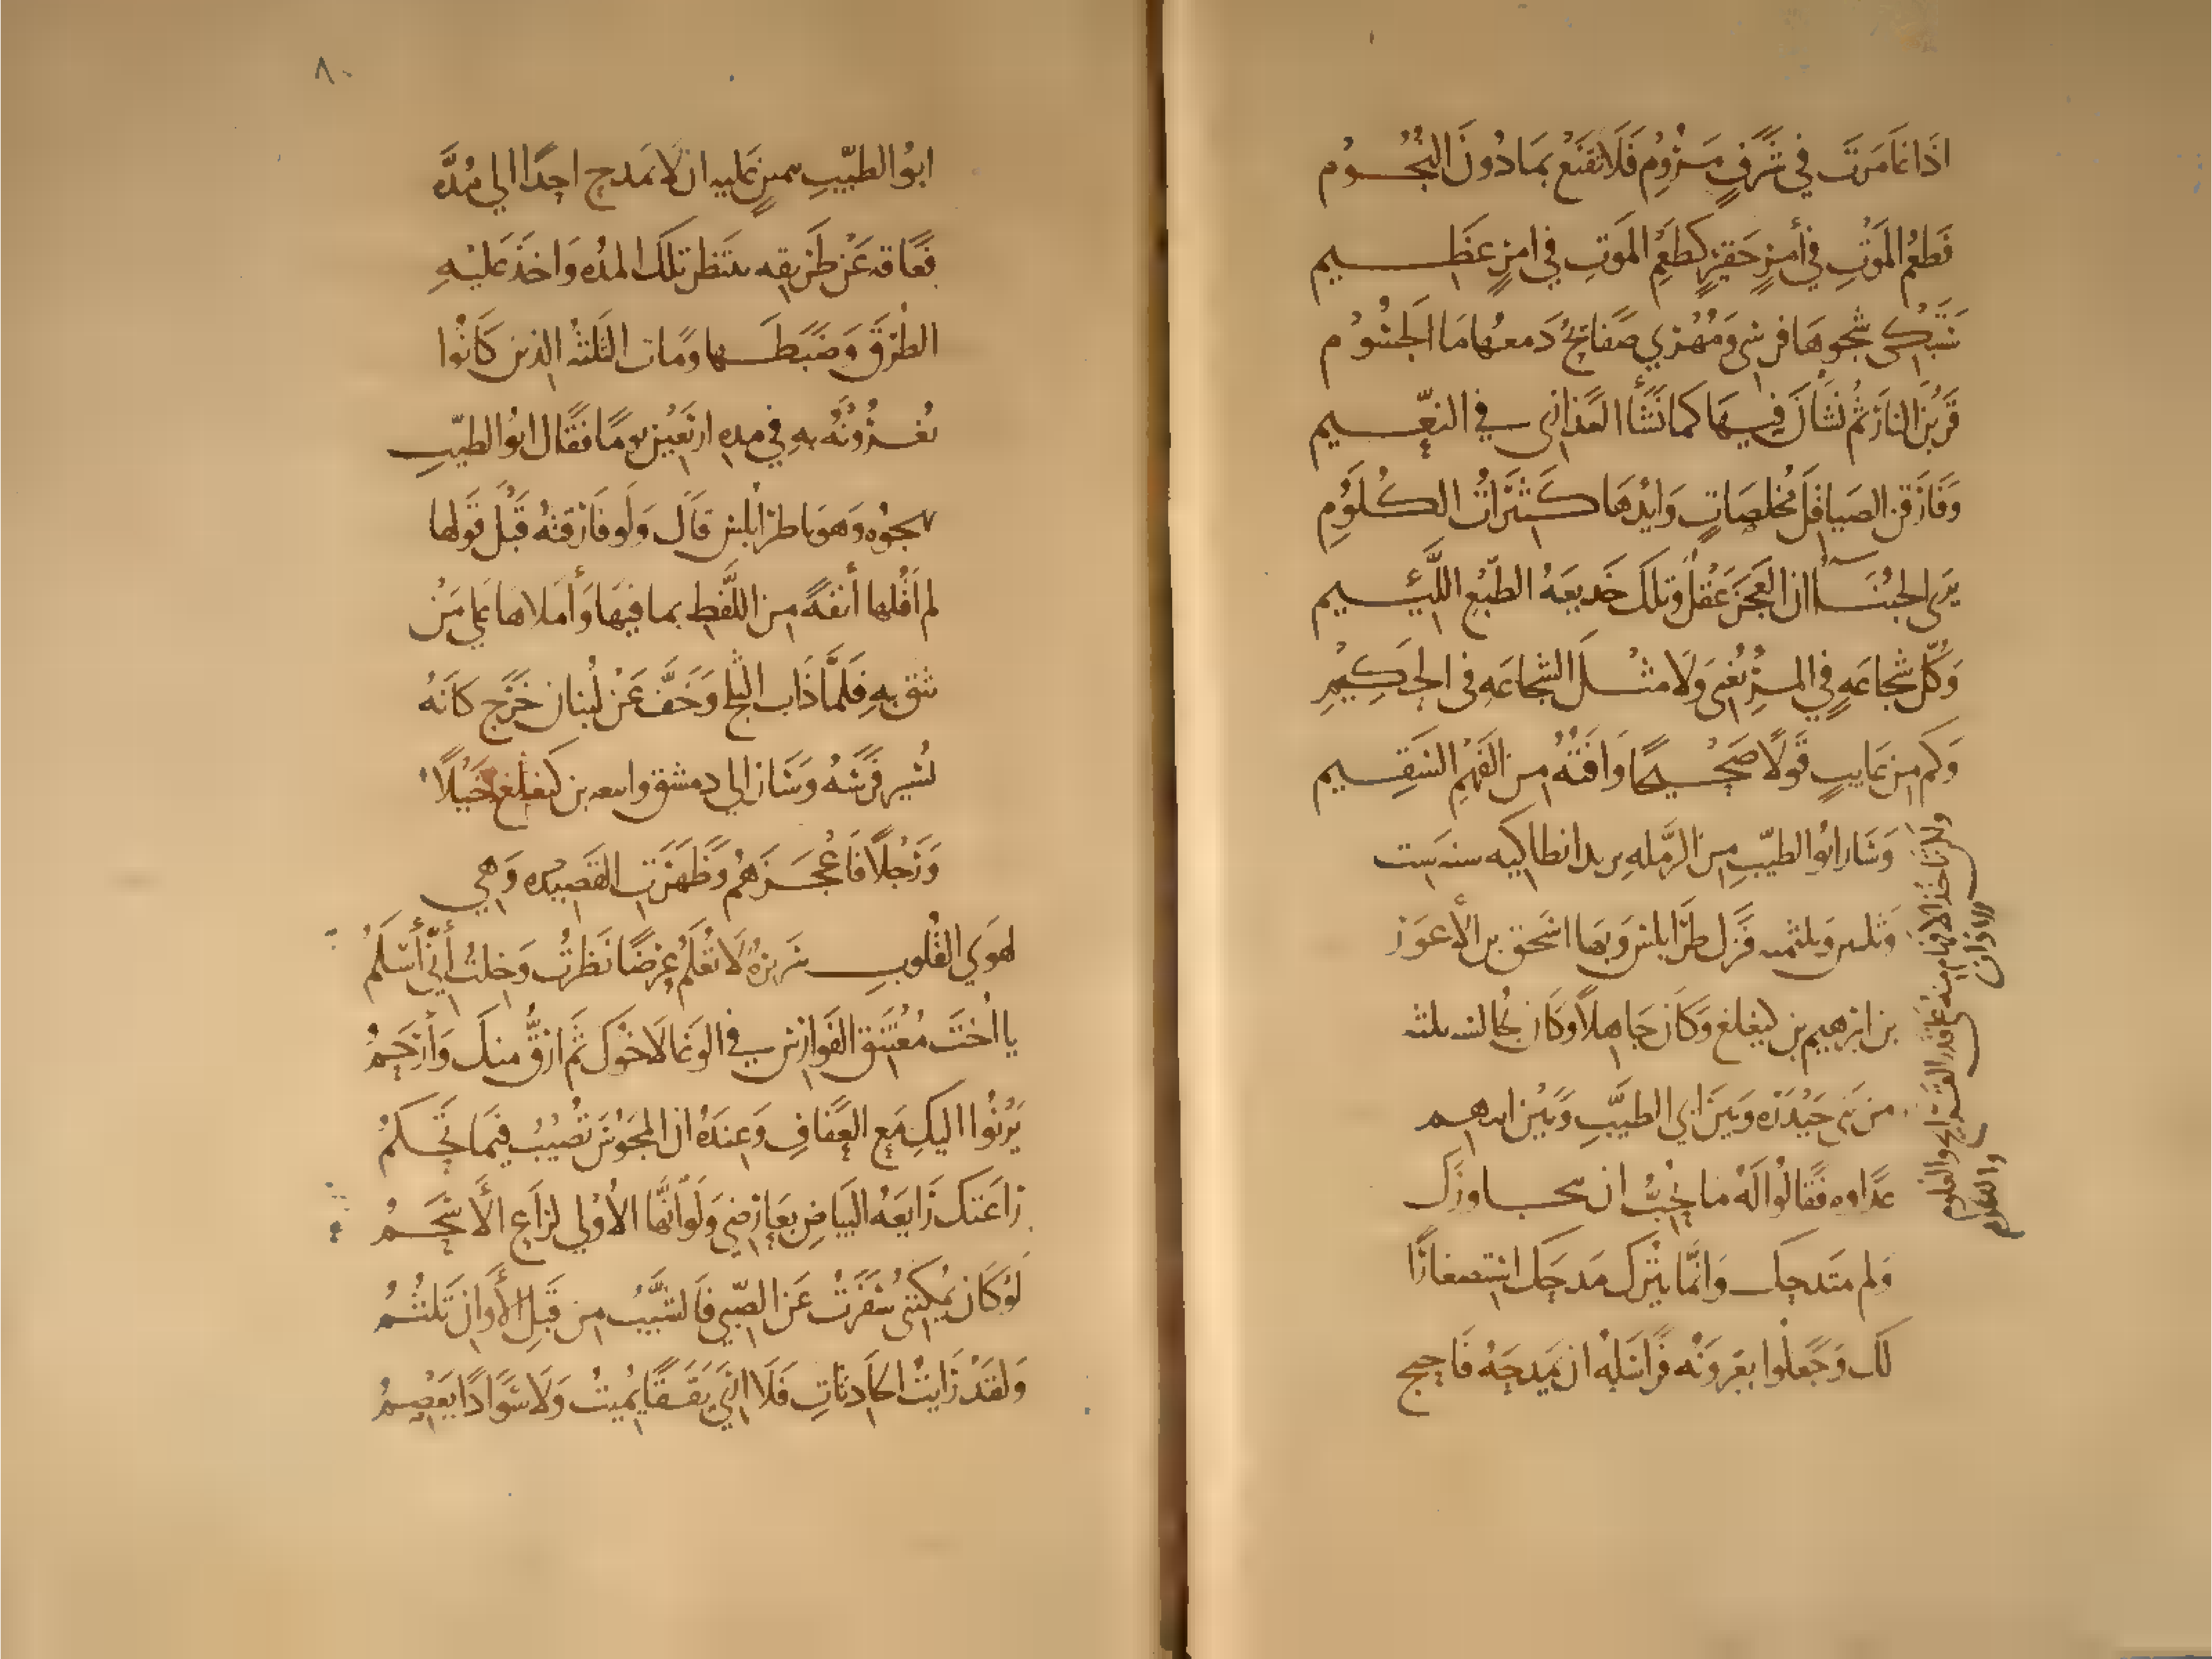 اذا غامرت في شرف مروم فلا تقنع بما دون النجوم
فطعم الموت في أمر حقير كطعم الموت في امر عظيم
ستبكى شجوها فرسى ومهري صفائح دمعها ما الجسوم
قربن النار ثم نشأن فيها كما نشأ العذارى في النعيم
وفارقن الصياقل مخلصات وايدها كثيرات الكلوم
يرى الجبنا ان العجز عقل وتلك خديعة الطبع اللئيم
وكل شجاعة في المرء تغنى ولا مثل الشجاعة في الحكيم
وكم من عايب قولا صحيحا وآفته من الفهم السقيم
ولكن تاخذ الاذان منه على قدر القرايح والعلوم
وسار ابو الطيب من الرمله يريد انطاكيه سنه ست
وثلثين وثلثمئه فنزل طرابلس وبها اسحق بن الأعور
بن ابرهيم بن كيغلغ وكان جاهلا وكان يجالسه ثلثه
من بني حيدره وبين ابي الطيب وبين ابيهم
عداوه فقالوا له ما نحب ان يتجاوزك
ولم يمتدحك وانما يترك مدحك استصغارا
لك وجعلوا يغرونه فراسله ان يمدحه فاحتج
٨٠
ابو الطيب بيمين عليه ان لا يمدح احدا الي مده
فعاقه عن طريقه ينتظر تلك المده واخذ عليه
الطرق وضبطها ومات الثلثه الذين كانوا
يغرونه به في مده اربعين يوما فقال ابو الطيب
يهجوه وهو باطرابلس قال ولو فارقته قبل قولها
لم اقلها أنفة من اللفظ بما فيها وأملاها على من
يثق به فلما ذاب الثلج وخف عن لبنان خرج كانه
يسير فرسه وسار الي دمشق واتبعه بن كيغلغ خيلا
ورجلا فاعجزهم وظهرت القصيده وهي
لهوي القلوب سريرة لا تعلم عرضا نظرت وخلت أني أسلم
يا اخت معتنق الفوارس في الوغا لاخوك ثم ارق منك وأرحم
يرنوا اليك مع العفاف وعنده ان المجوس تصيب فيما تحكم
راعتك رايعة البياض بعارضي ولو انها الاولي لراع الأسحم
لو كان يمكنني سفرت عن الصبي فالشيب من قبل الأوان تلثم
ولقد رايت الحادثات فلا اري يققا يميت ولا سوادا يعصم